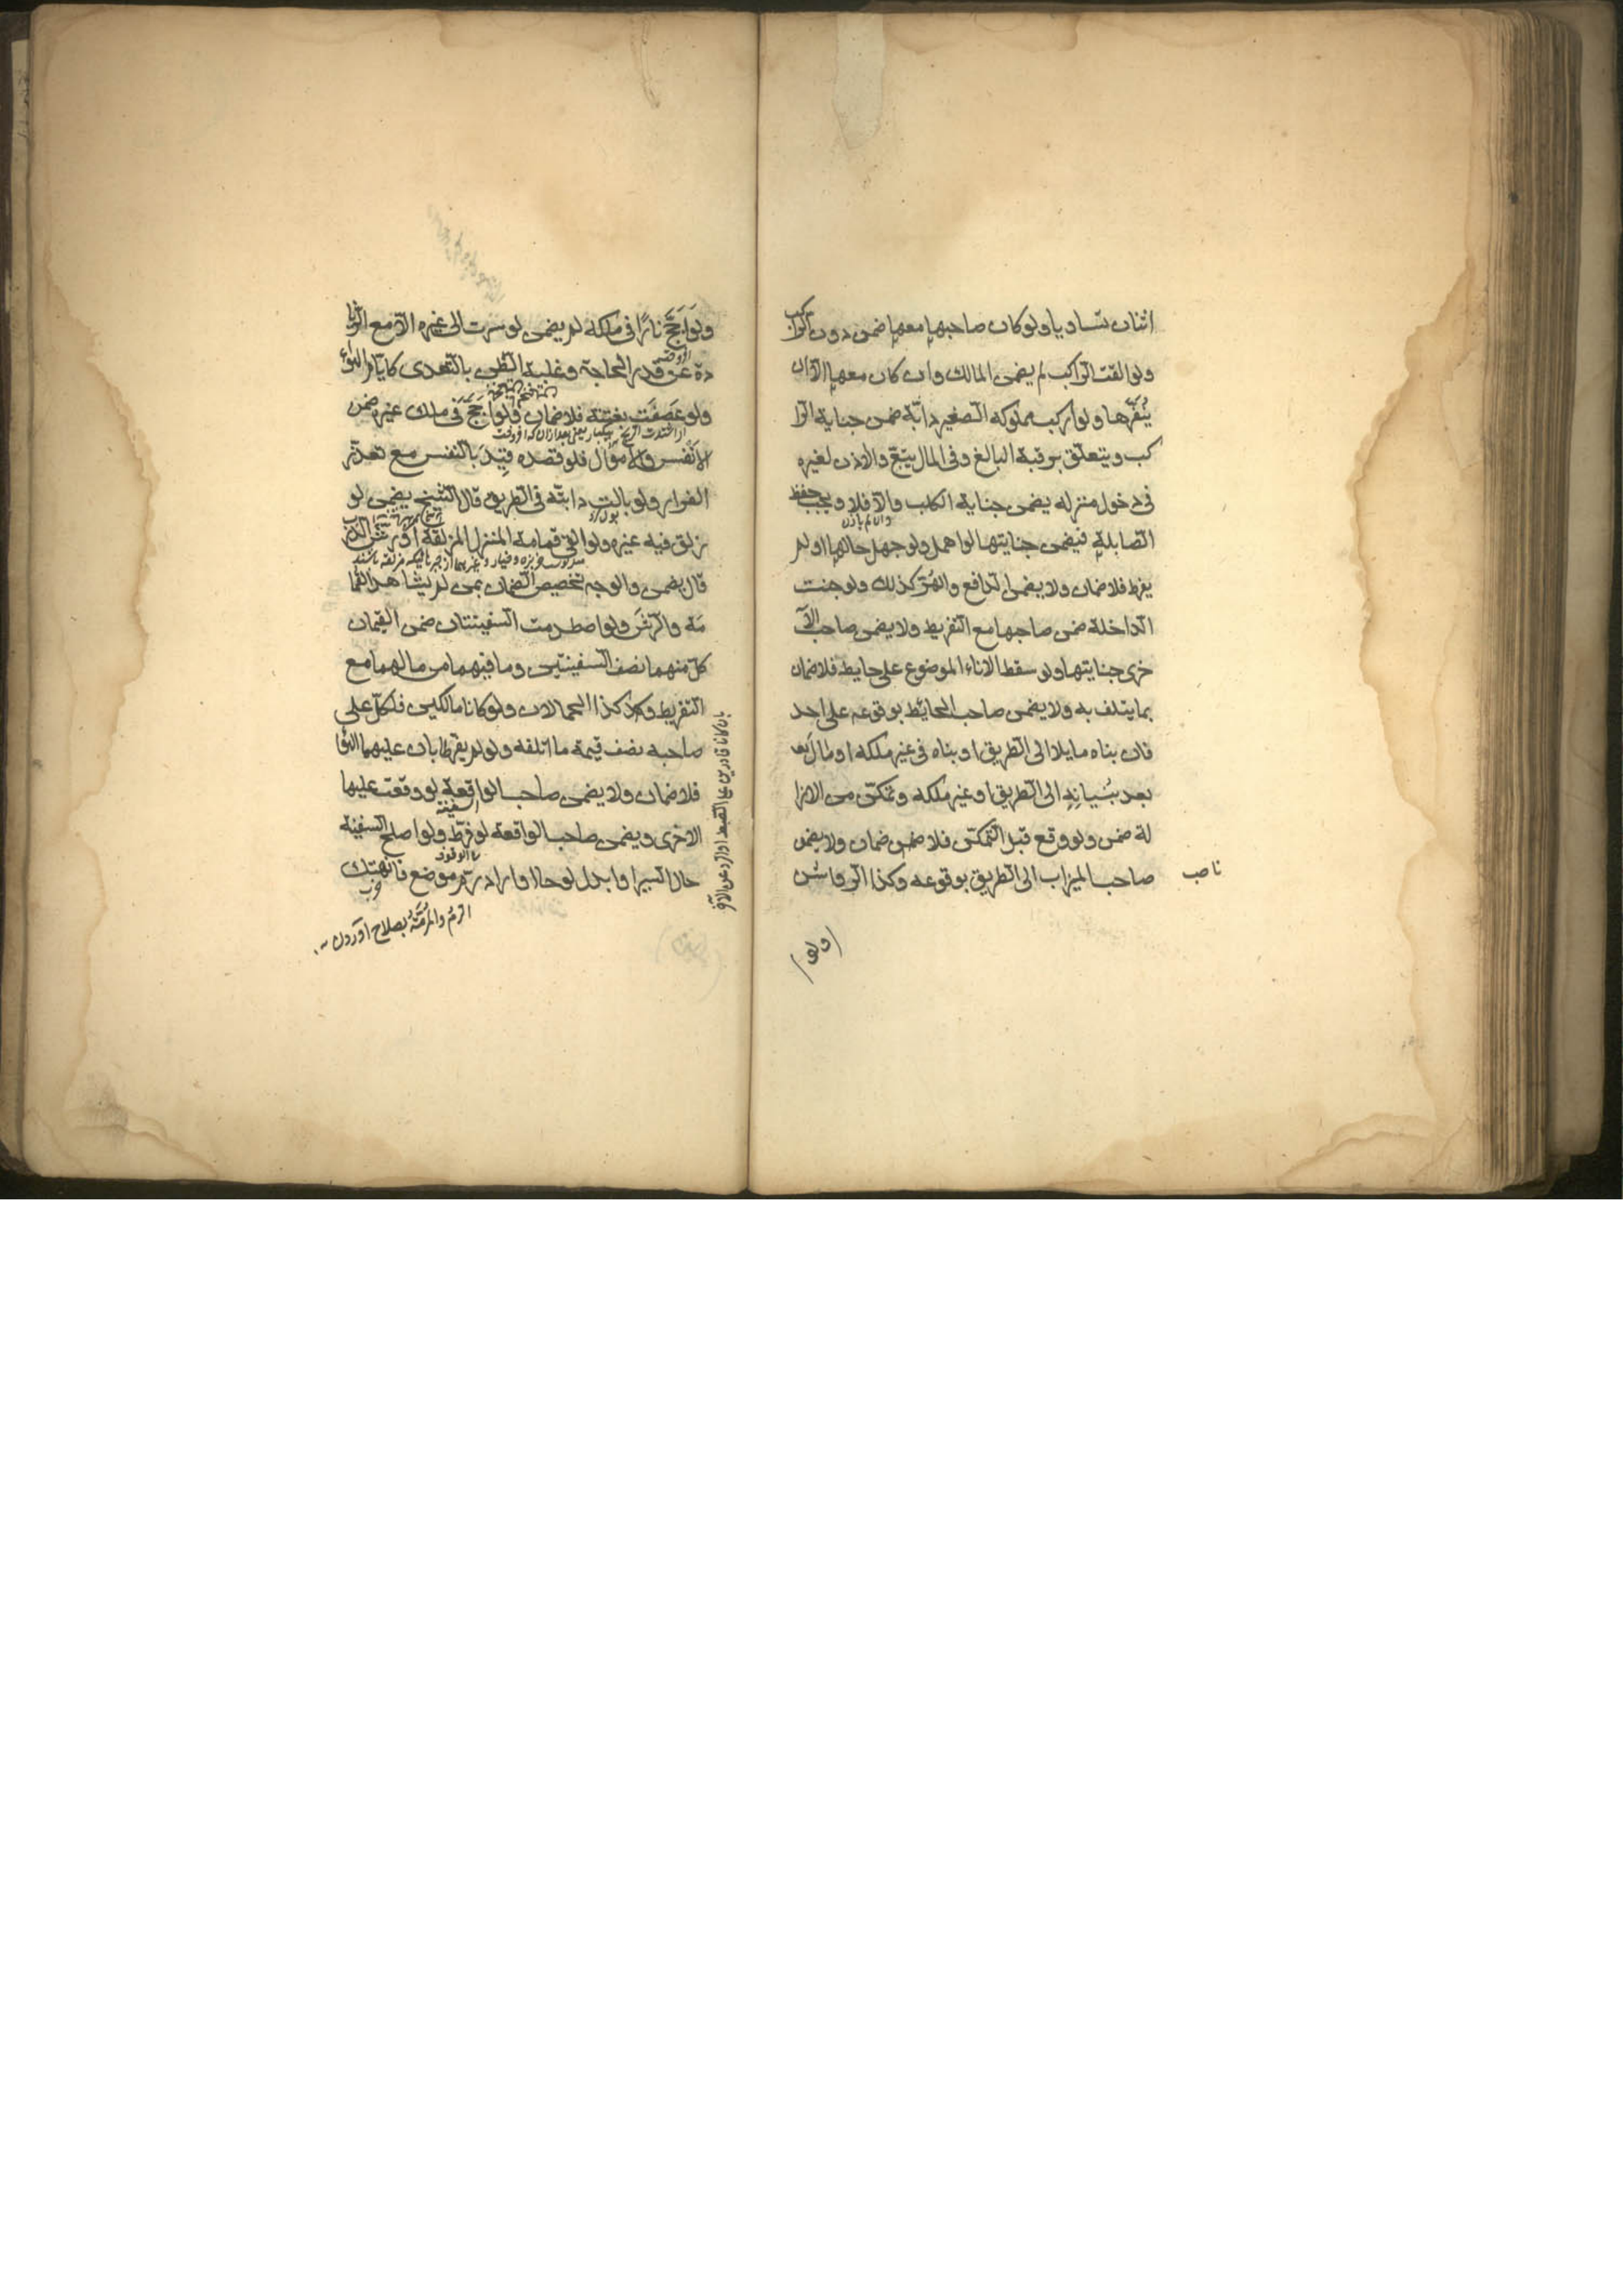 اثنان تساويا ولو كان صاحبها معها ضمن دون الراكب
ولو القت الراكب لم يضمن المالك وان كان معها الا ان
ينفرها ولو اركب مملوكه الصغير دابة ضمن جناية الرا
كب ويتعلق برقبة البالغ وفى المال يتبع والاذن لغيره
فى دخول منزله يضمن جناية الكلب والا فلا ويجب حفظ
وان لم ياذن
الصايلة فيضمن جنايتها لو اهمل ولو جهل حالها او لم
يفرط فلا ضمان ولا يضمن الدافع والهر كذلك ولو جنت
الداخلة ضمن صاحبها مع التفريط ولا يضمن صاحب الا
خرى جنايتها ولو سقط الاناء الموضوع على حايط فلا ضمان
بما يتلف به ولا يضمن صاحب الحائط بوقوعه على احد
فان بناه مايلا الى الطريق او بناه فى غير ملكه او مال
بعد بنيانه الى الطريق او غير ملكه وتمكن من الازا
لة ضمن ولو وقع قبل التمكن فلا ضمن ضمان ولا يضمن
صاحب الميزاب الى الطريق بوقوعه وكذا الرواشن
ناصب
ولو
ولو اجج نارا فى ملكه لم يضمن لو سرت الى غيره الا مع الزيا
دة عن قدر الحاجة وغلبة الظن بالتعدى كايام الهواء
ولو عصفت بغتة فلا ضمان ولو اجج فى ملك غيره ضمن
الانفس والاموال فلو قصده قيد بالنفس مع تعذر
الفرار ولو بالت دابته فى الطريق قال الشيخ يضمن لو
زلق فيه غيره ولو القى قمامة المنزل المزلقة او رش الدرب
قال يضمن والوجه تخصيص الضمان بمن لم يشاهد القما
مة والرش ولو اصطدمت السفينتان ضمن القيمان
كل منهما نصف السفينتين وما فيهما من مالهما مع
التفريط وكذا الحمالان ولو كانا مالكين فلكل على
صاحبه نصف قيمة ما اتلفه ولو لم يفرطا بان عليهما الهوا
فلا ضمان ولا يضمن صاحب الواقعة لو وقعت عليها
السفينة
الاخرى ويضمن صاحب الواقعة لو فرط ولو اصلح السفينة
حال السير او ابدل لوحا او اراد رم موضع فانهتك
الرم والمرمة بصلاح آوردن